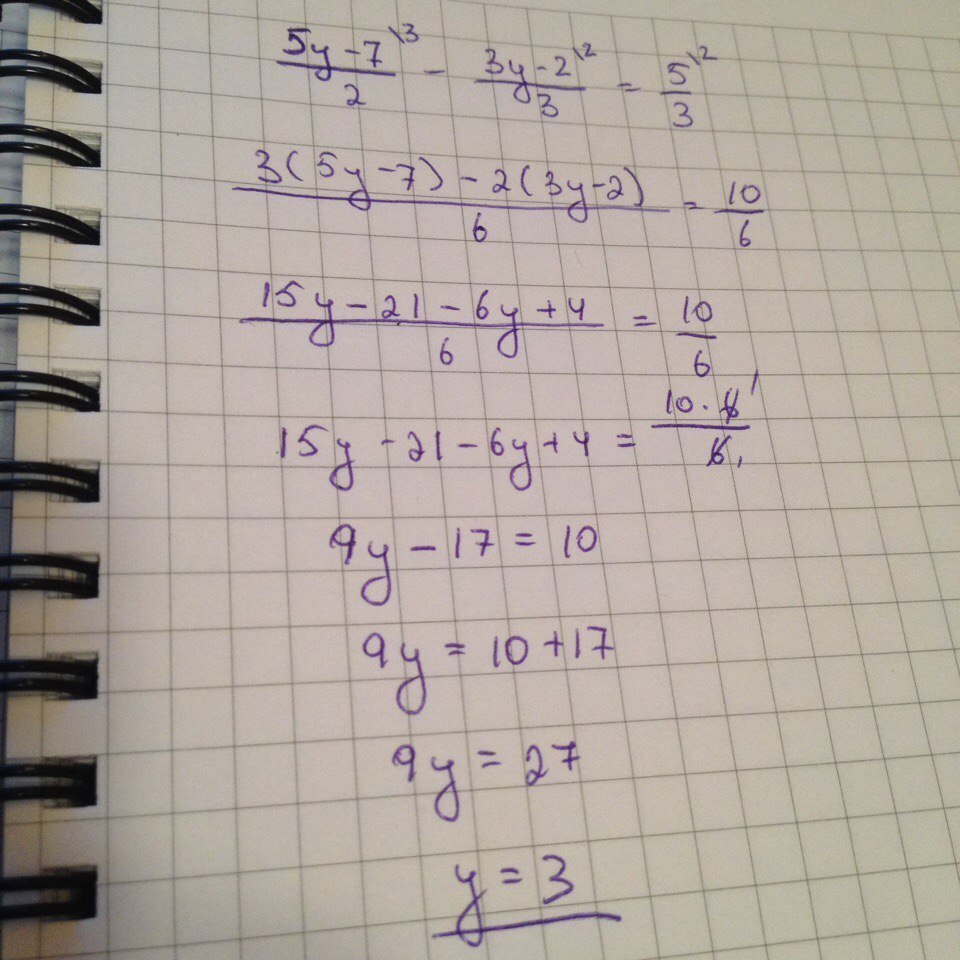 \frac{5y-7^{\backslash 3}}{2} - \frac{3y-2^{\backslash 2}}{3} = \frac{5^{\backslash 2}}{3}
\frac{3(5y-7)-2(3y-2)}{6} = \frac{10}{6}
\frac{15y-21-6y+4}{6} = \frac{10}{6}
15y-21-6y+4 = \frac{10 \cdot \cancel{6}^{1}}{\cancel{6}_{1}}
9y-17=10
9y=10+17
9y=27
y=3